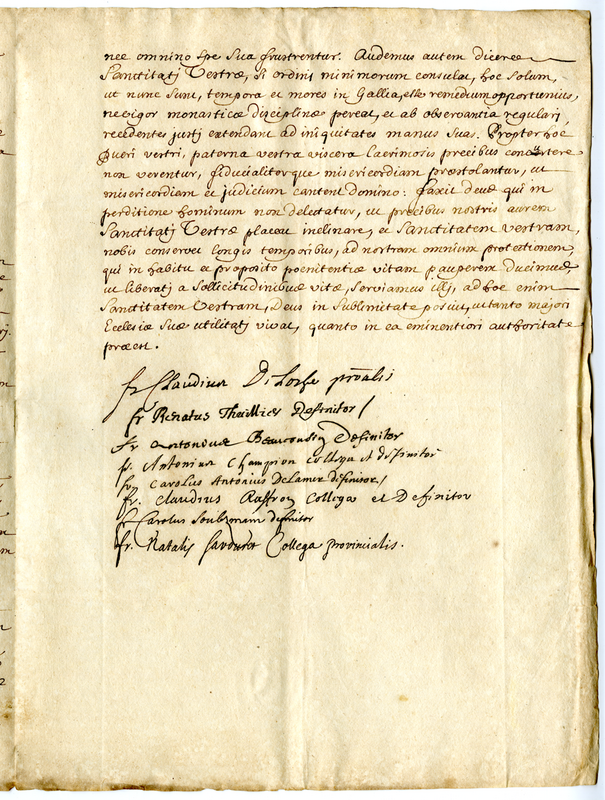 nec omnino spe sua frustrentur. Audemus autem dicere
Sanctitatj Vestræ, si ordini minimorum consulat, hoc solum,
ut nunc sunt, tempora et mores in Gallia, esse remedium opportunius,
ne vigor monasticæ disciplinæ pereat, et ab observantia regularj,
recedentes justj extendant ad iniquitates manus suas. Propter hoc
pueri vestri, paterna vestra viscera lacrimosis precibus
non verentur, fiducialiterque misericordiam præstolantur, ut
misericordiam et judicium cantent domino: faxit deus qui in
perditione hominum non delectatur, ut precibus nostris aurem
Sanctitatj Vestræ placeat inclinare, et Sanctitatem vestram,
nobis conservet longis temporibus, ad nostram omnium protectionem,
qui in habitu et proposito poenitentiæ vitam pauperem ducimus,
ut liberatj a sollicitudinibus vitæ, serviamus illj, ad hoc enim
Sanctitatem Vestram, Deus in sublimitate posuit, ut tanto majori
Ecclesiæ suæ utilitatj vivat, quanto in ea eminentiori authoritate
præest.
fr Claudius
fr Renatus Definitor
fr Antonius Definitor
fr. Antonius Champion Collega et definitor
fr Carolus Antonius Delamer definitor
fr. Claudius Raffron Collega et Definitor
fr Carolus definitor
fr. Natalis Collega provincialis.